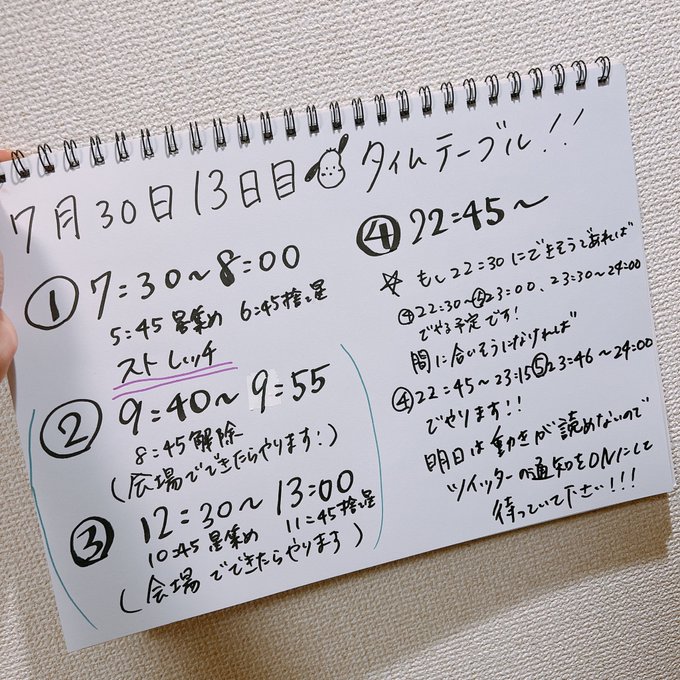 7月30日13日目 タイムテーブル!!
① 7:30〜8:00
5:45 星集め 6:45 捨て星
ストレッチ
② 9:40〜9:55
8:45 解除
(会場でできたらやります!)
③ 12:30〜13:00
10:45 星集め 11:45 捨て星
(会場でできたらやります)
④ 22:45〜
☆ もし22:30にできそうであれば
④22:30〜⑤23:00、23:30〜24:00
でやる予定です!
間に合いそうになければ
④22:45〜23:15⑤23:46〜24:00
でやります!!
明日は動きが読めないので
ツイッターの通知をONにして
待っていて下さい!!!